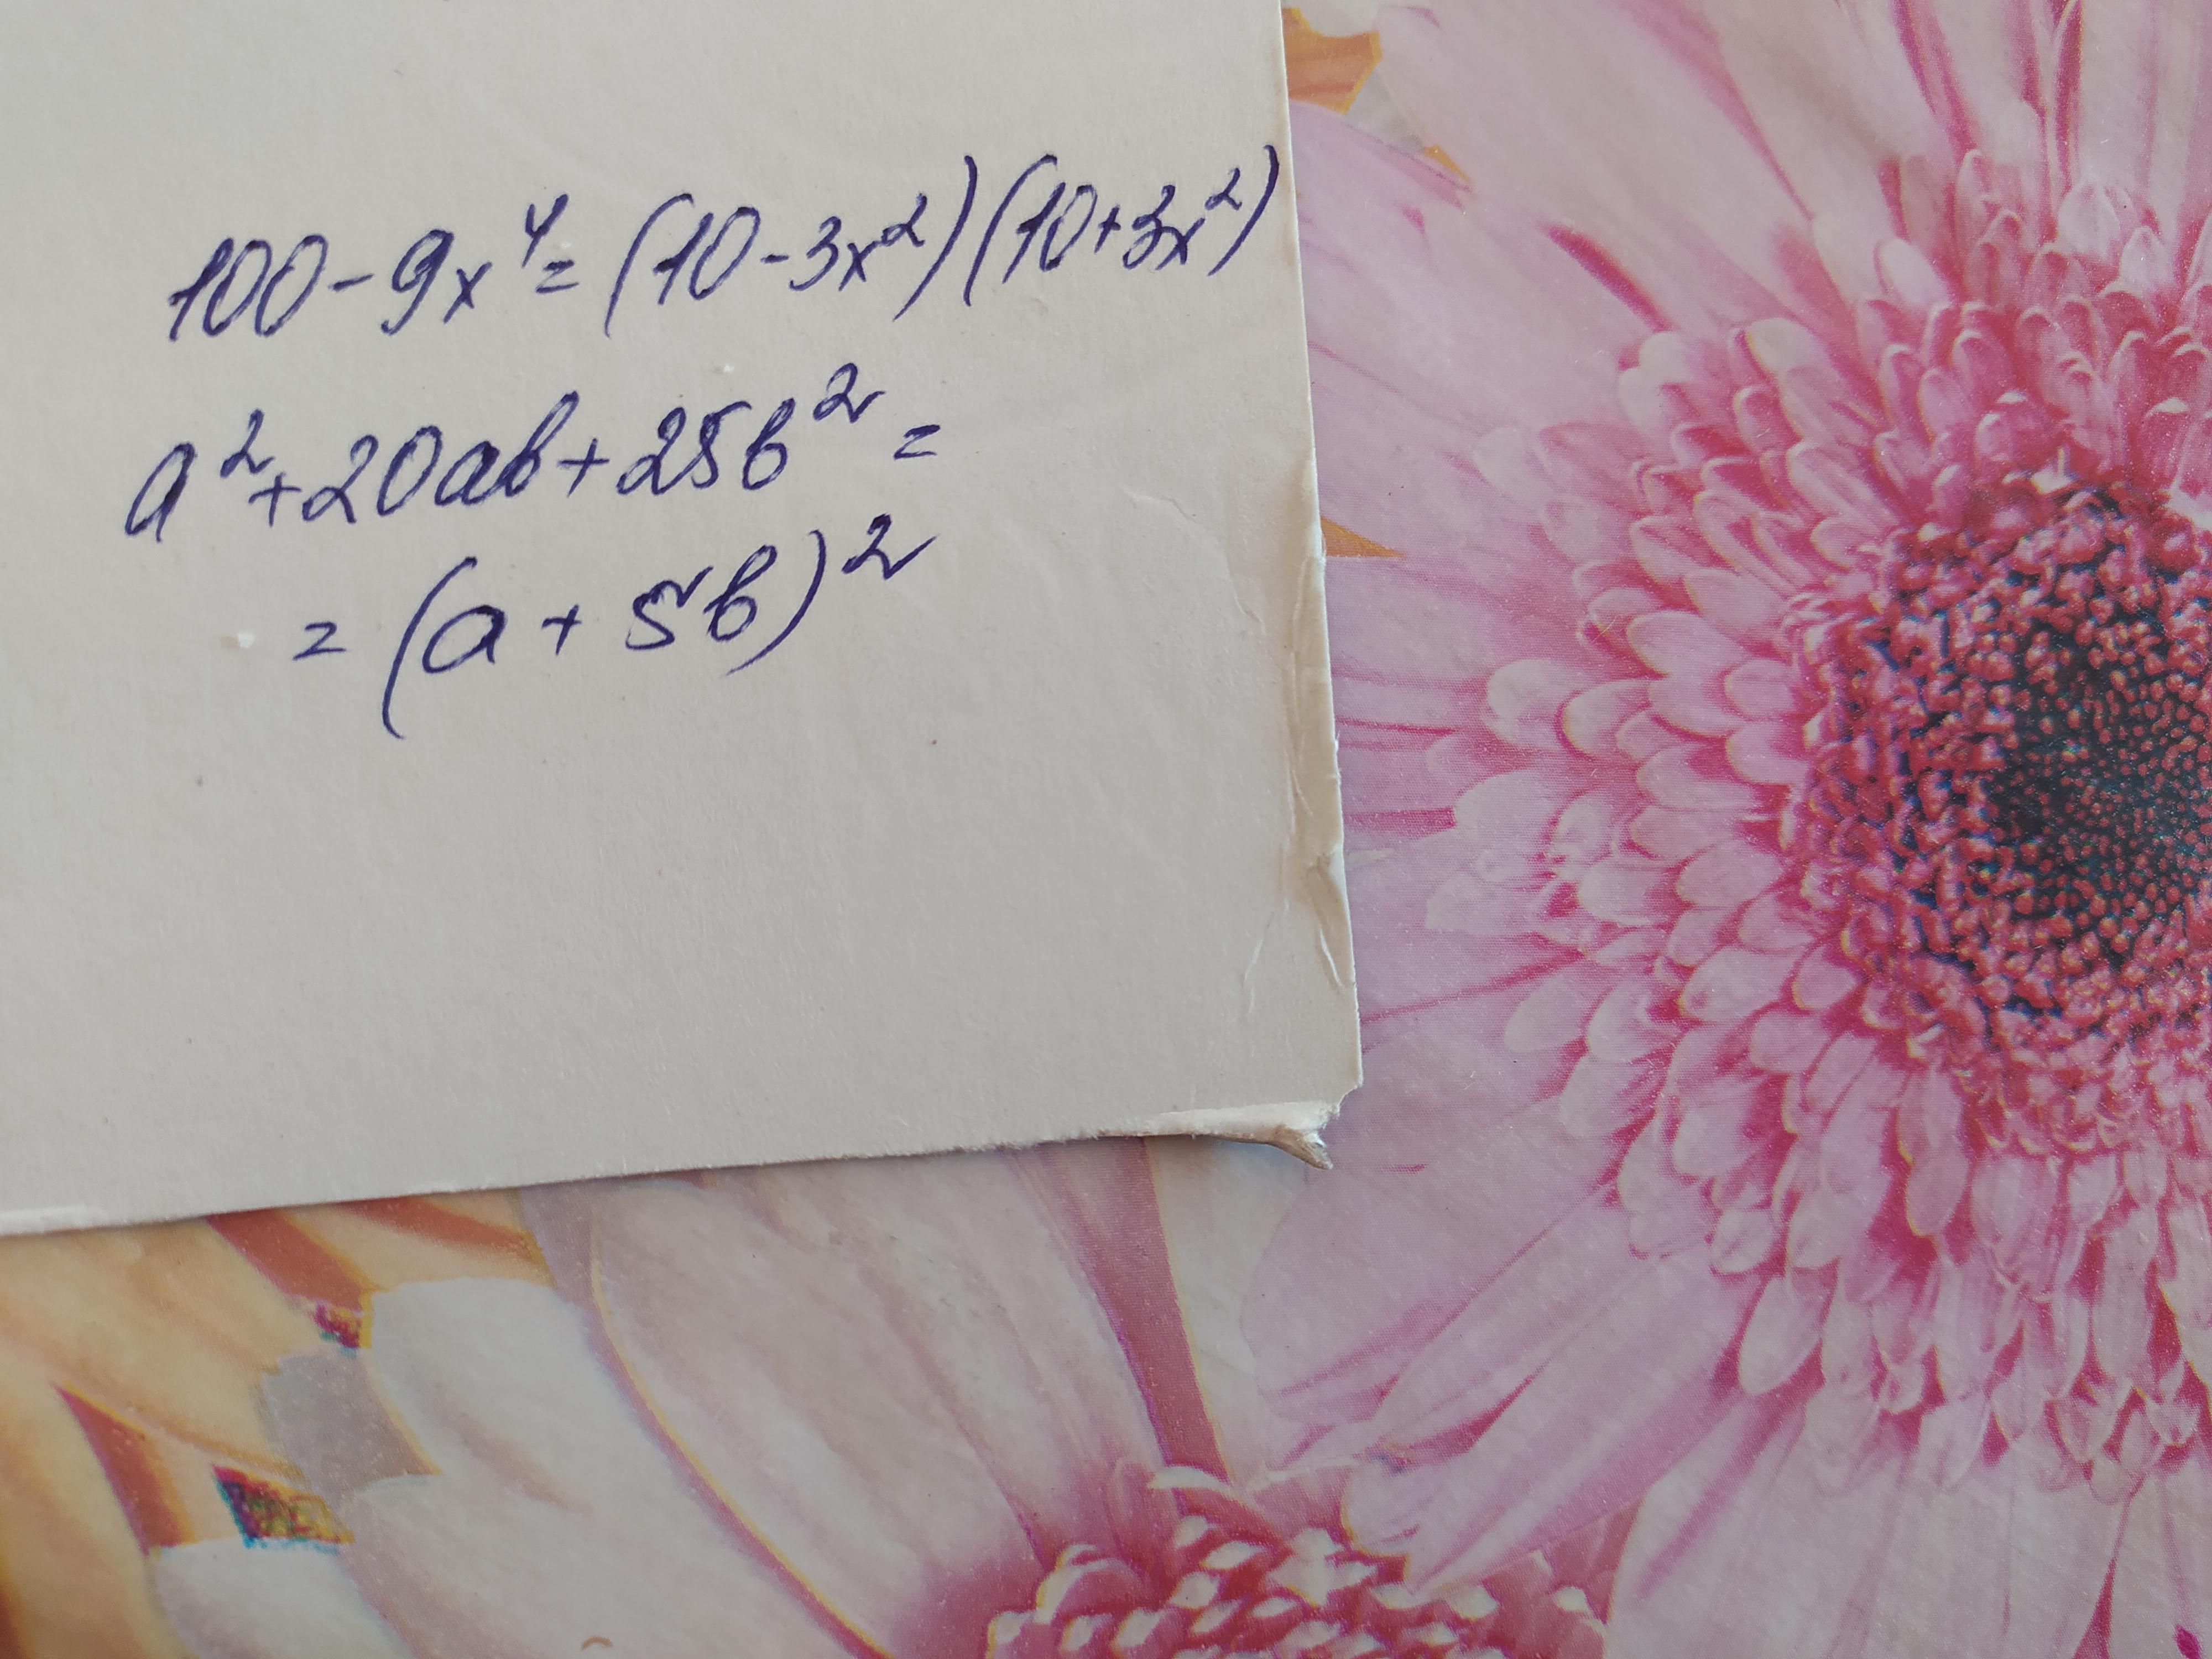 100-9x⁴=(10-3x²)(10+3x²)
a²+20ab+25b²=
=(a+5b)²